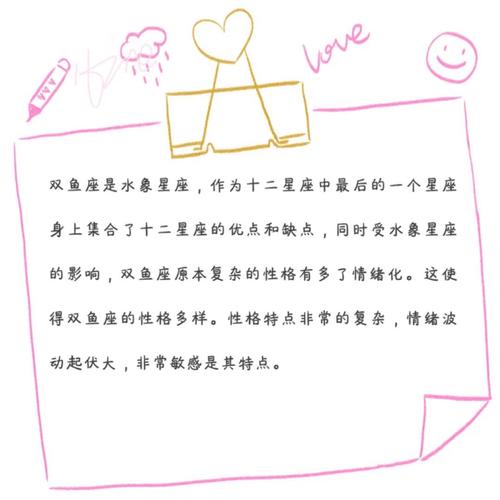 love
双鱼座是水象星座，作为十二星座中最后的一个星座
身上集合了十二星座的优点和缺点，同时受水象星座
的影响，双鱼座原本复杂的性格有多了情绪化。这使
得双鱼座的性格多样。性格特点非常的复杂，情绪波
动起伏大，非常敏感是其特点。